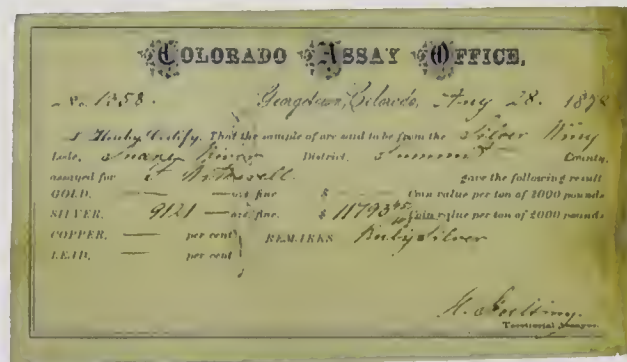 COLORADO ASSAY OFFICE,
No. 1358. Georgetown, Colorado, Aug 28. 1878
I Hereby Certify, That the sample of ore said to be from the Silver King
Lode, Snake River District, Summit County,
assayed for gave the following result
GOLD. — ozs fine $ — Coin value per ton of 2000 pounds
SILVER. 9121 — ozs fine. $ 11793 45 Coin value per ton of 2000 pounds
COPPER. — per cent REMARKS Ruby Silver
LEAD. — per cent
Territorial Assayer.